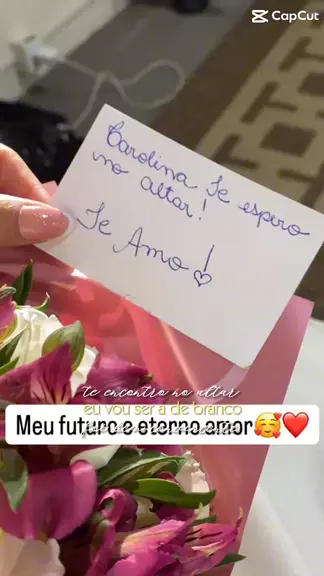 CapCut
Carolina te espero
no altar!
Te Amo!
te encontro no altar
eu vou ser a de branco
Meu futuro e eterno amor🥰❤️